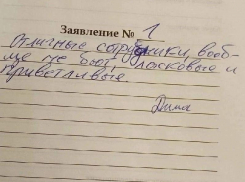 Заявление № 1
Отличные сотрудники, вооб-
ще не бьют, ласковые и
приветливые
Дима